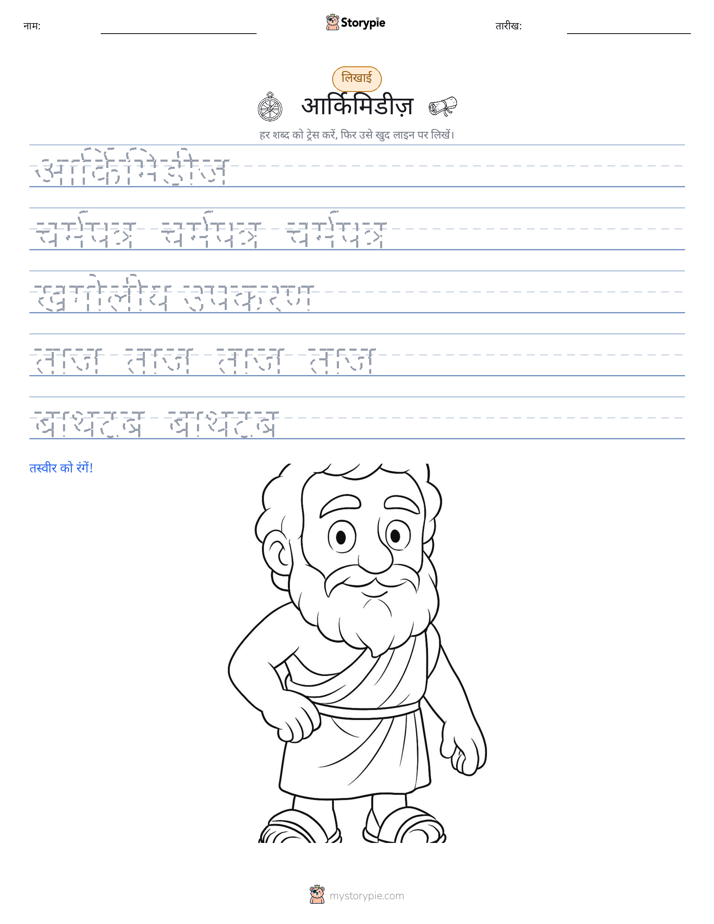 नाम:
Storypie
तारीख:
लिखाई
आर्किमिडीज़
हर शब्द को ट्रेस करें, फिर उसे खुद लाइन पर लिखें।
आर्किमिडीज
चर्मपत्र चर्मपत्र चर्मपत्र
खगोलीय उपकरण
ताज ताज ताज ताज
बाथटब बाथटब
तस्वीर को रंगें!
mystorypie.com